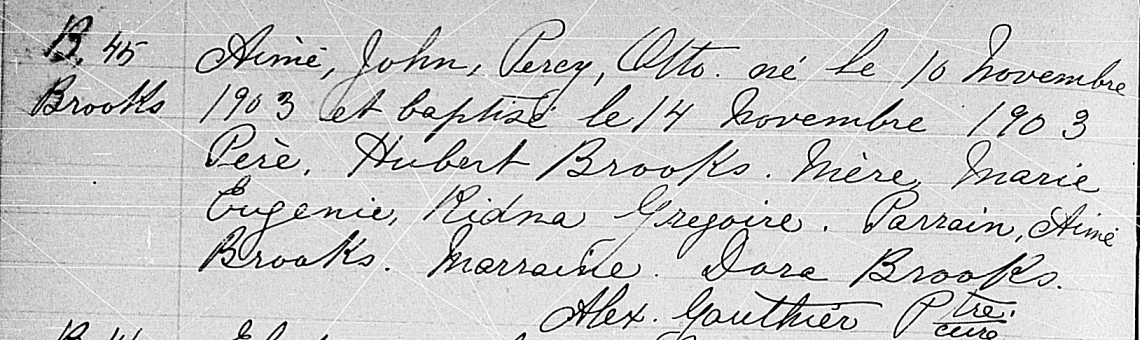 B. 45 Aimé, John, Percy, Otto. né le 10 Novembre
Brooks 1903 et baptisé le 14 Novembre 1903
Père, Hubert Brooks. Mère, Marie
Eugenie, Ridna Gregoire. Parrain, Aimé
Brooks. Marraine. Dora Brooks.
Alex. Gauthier Ptre.
curé
B.